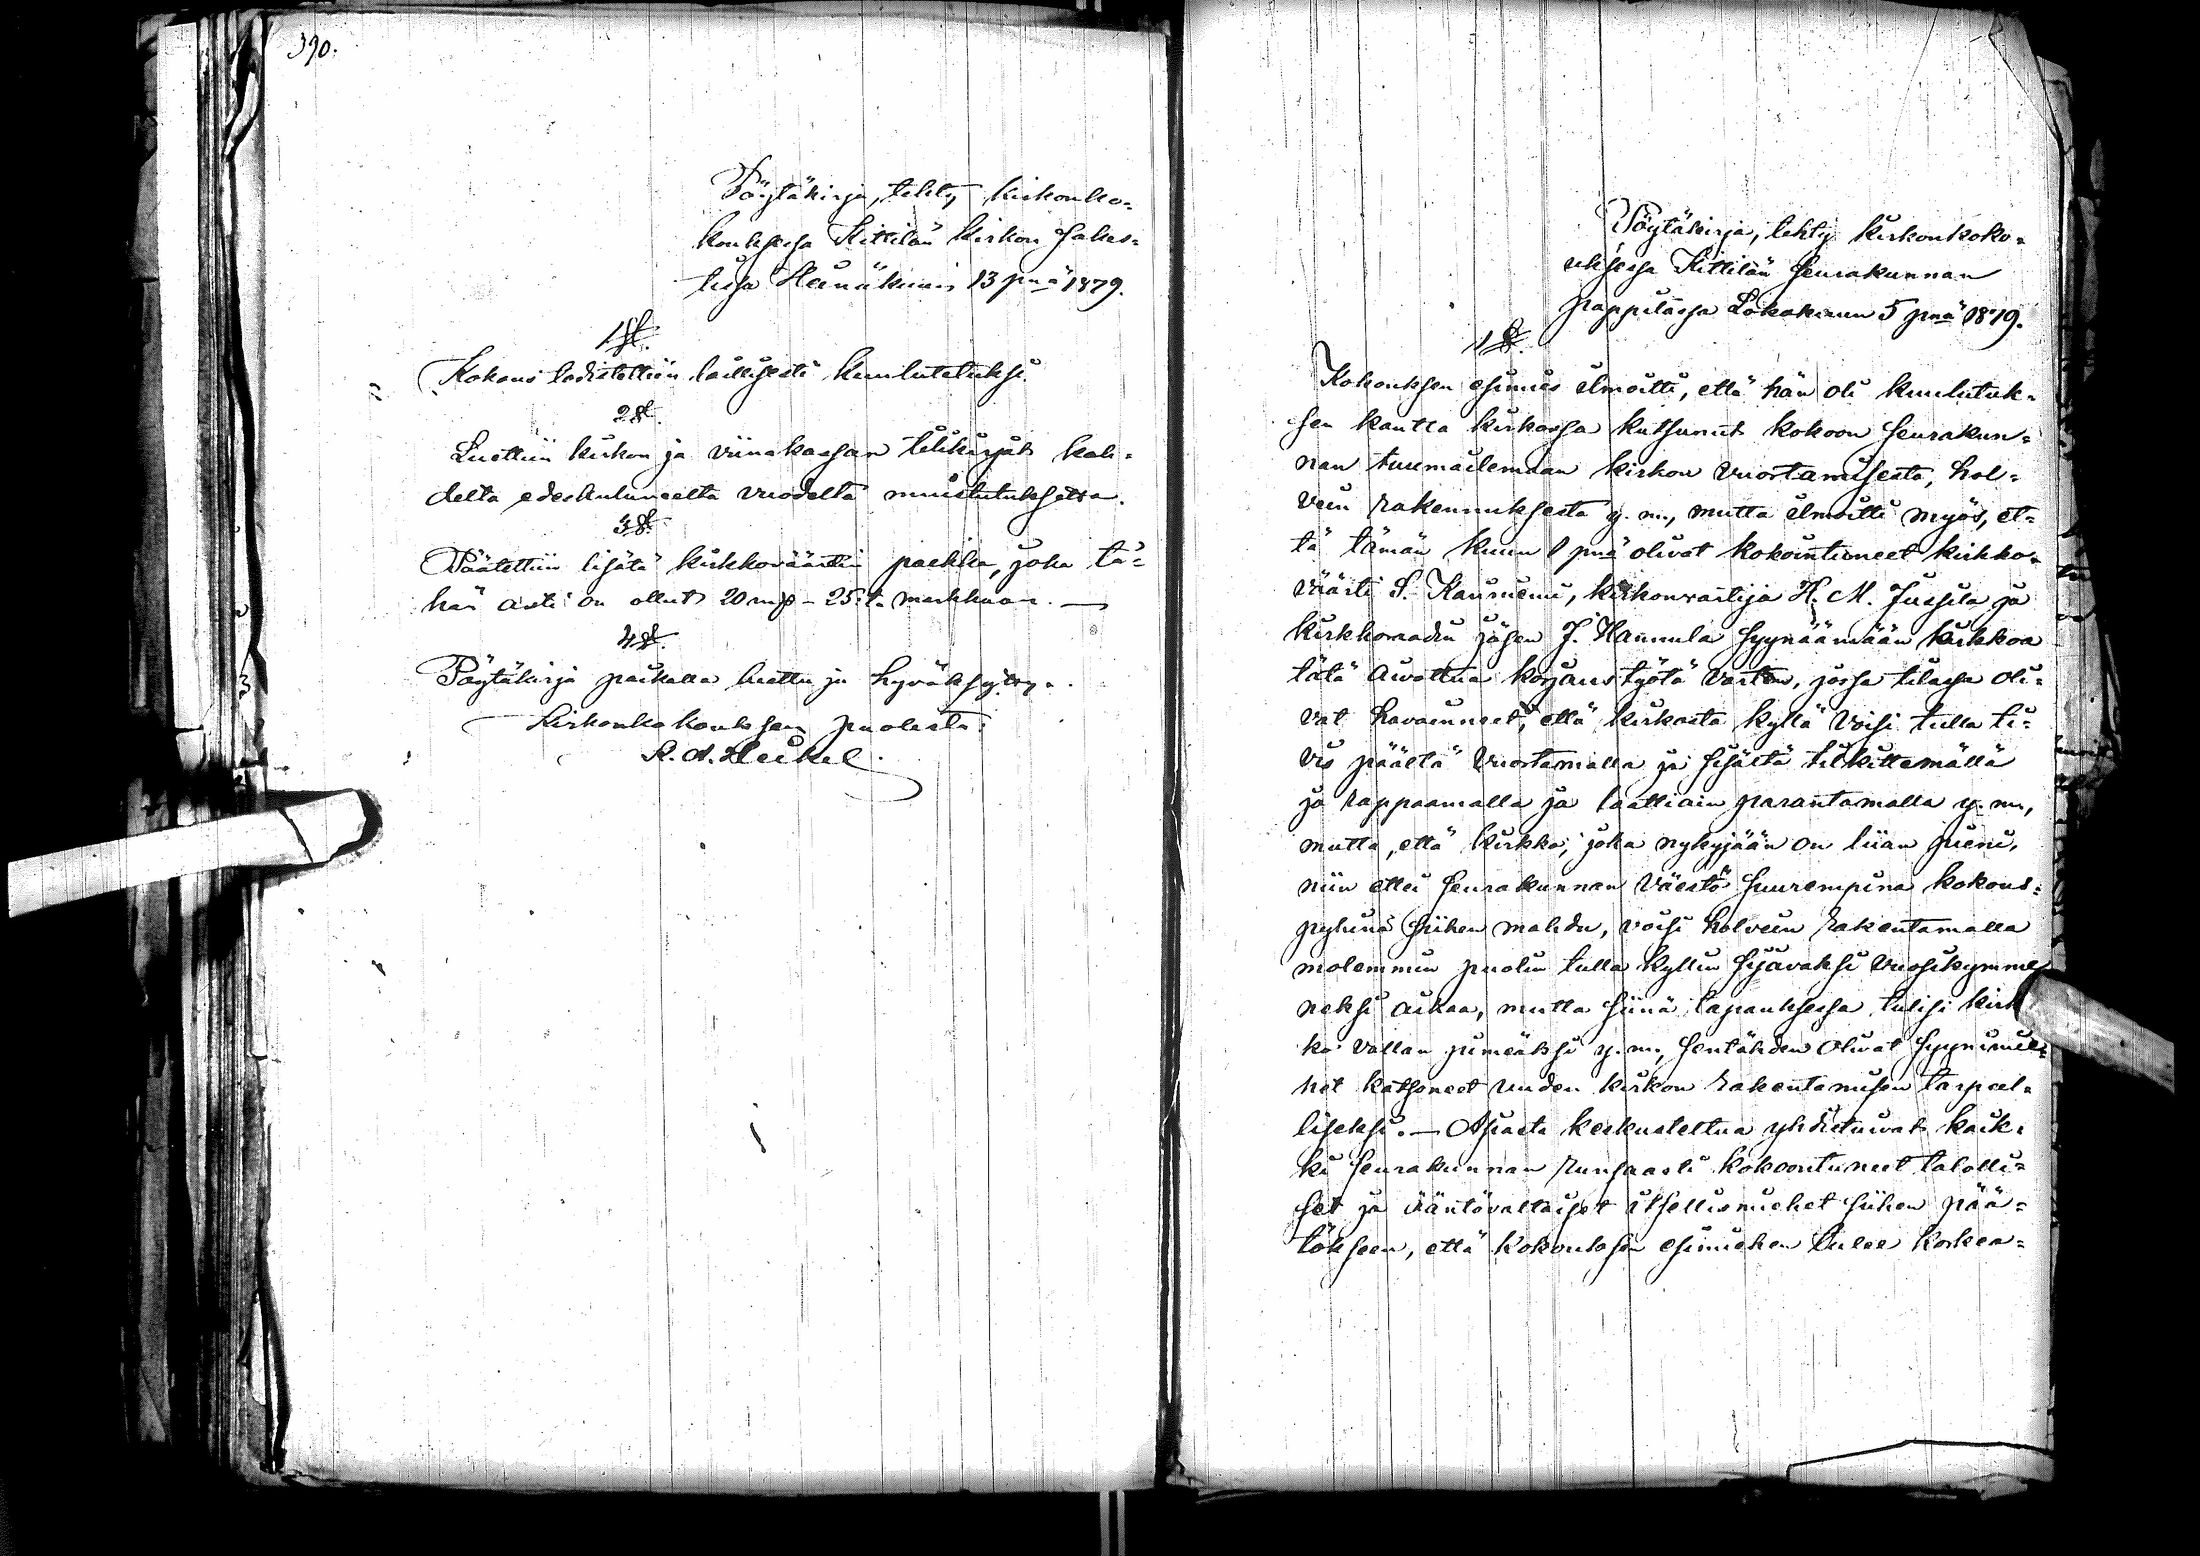 390.
Pöytäkirja, tehty kirkonko-
kouksessa Kittilän kirkon sakas-
tissa Heinäkuun 13 pnä 1879.
1 §.
Kokous todistettiin laillisesti kuulutetuksi.
2 §.
Luettiin kirkon ja viinakassan tilikirjat kah-
delta edeskuluneelta vuodelta muistutuksetta.
3 §.
Päätettiin lisätä kirkkoväärtin palkka, joka tä-
hän asti on ollut 20 mk - 25:ks markkaan. —
4 §.
Pöytäkirja paikalla luettu ja hyväksytty.
Kirkonkokouksen puolesta:
K. A. Heikel.
Pöytäkirja, tehty kirkonkoko-
uksessa Kittilän seurakunnan
pappilassa Lokakuun 5 pnä 1879.
1 §.
Kokouksen esimies ilmoitti, että hän oli kuulutuk-
sen kautta kirkossa kutsunut kokoon seurakun-
nan tuumailemaan kirkon vuoraamisesta, hol-
vein rakennuksesta y. m., mutta ilmoitti myös, et-
tä tämän kuun 1 pnä olivat kokointuneet kirkko-
väärti S. Kauniumi, kirkonvartija H. M. Jussila ja
kirkkoraadin jäsen J. Hannula syynäämään kirkkoa
tätä aivottua korjaustyötä varten, jossa tilassa oli-
vat havainneet, että kirkosta kyllä voisi tulla ti-
vis päältä vuoraamalla ja sisältä tilkittämällä
ja rappaamalla ja laattiain parantamalla y. m.,
mutta, että kirkko, joka nykyjään on liian pieni,
niin ettei seurakunnan väestö suurempina kokous-
pyhinä siihen mahdu, voisi holvein rakentamalla
molemmin puolin tulla kyllin sijavaksi vuosikymme-
neksi aikaa, mutta siinä tapauksessa tulisi kirk
ko vallan pimeäksi y. m., sentähden olivat syynimie-
het katsoneet uuden kirkon rakentamisen tarpeel-
liseksi. — Asiasta keskusteltua yhdistuivat kaik-
ki seurakunnan runsaasti kokoontuneet talolli-
set ja ääntövaltaiset itsellismiehet siihen pää-
tökseen, että kokouksen esimiehen tulee korkea-